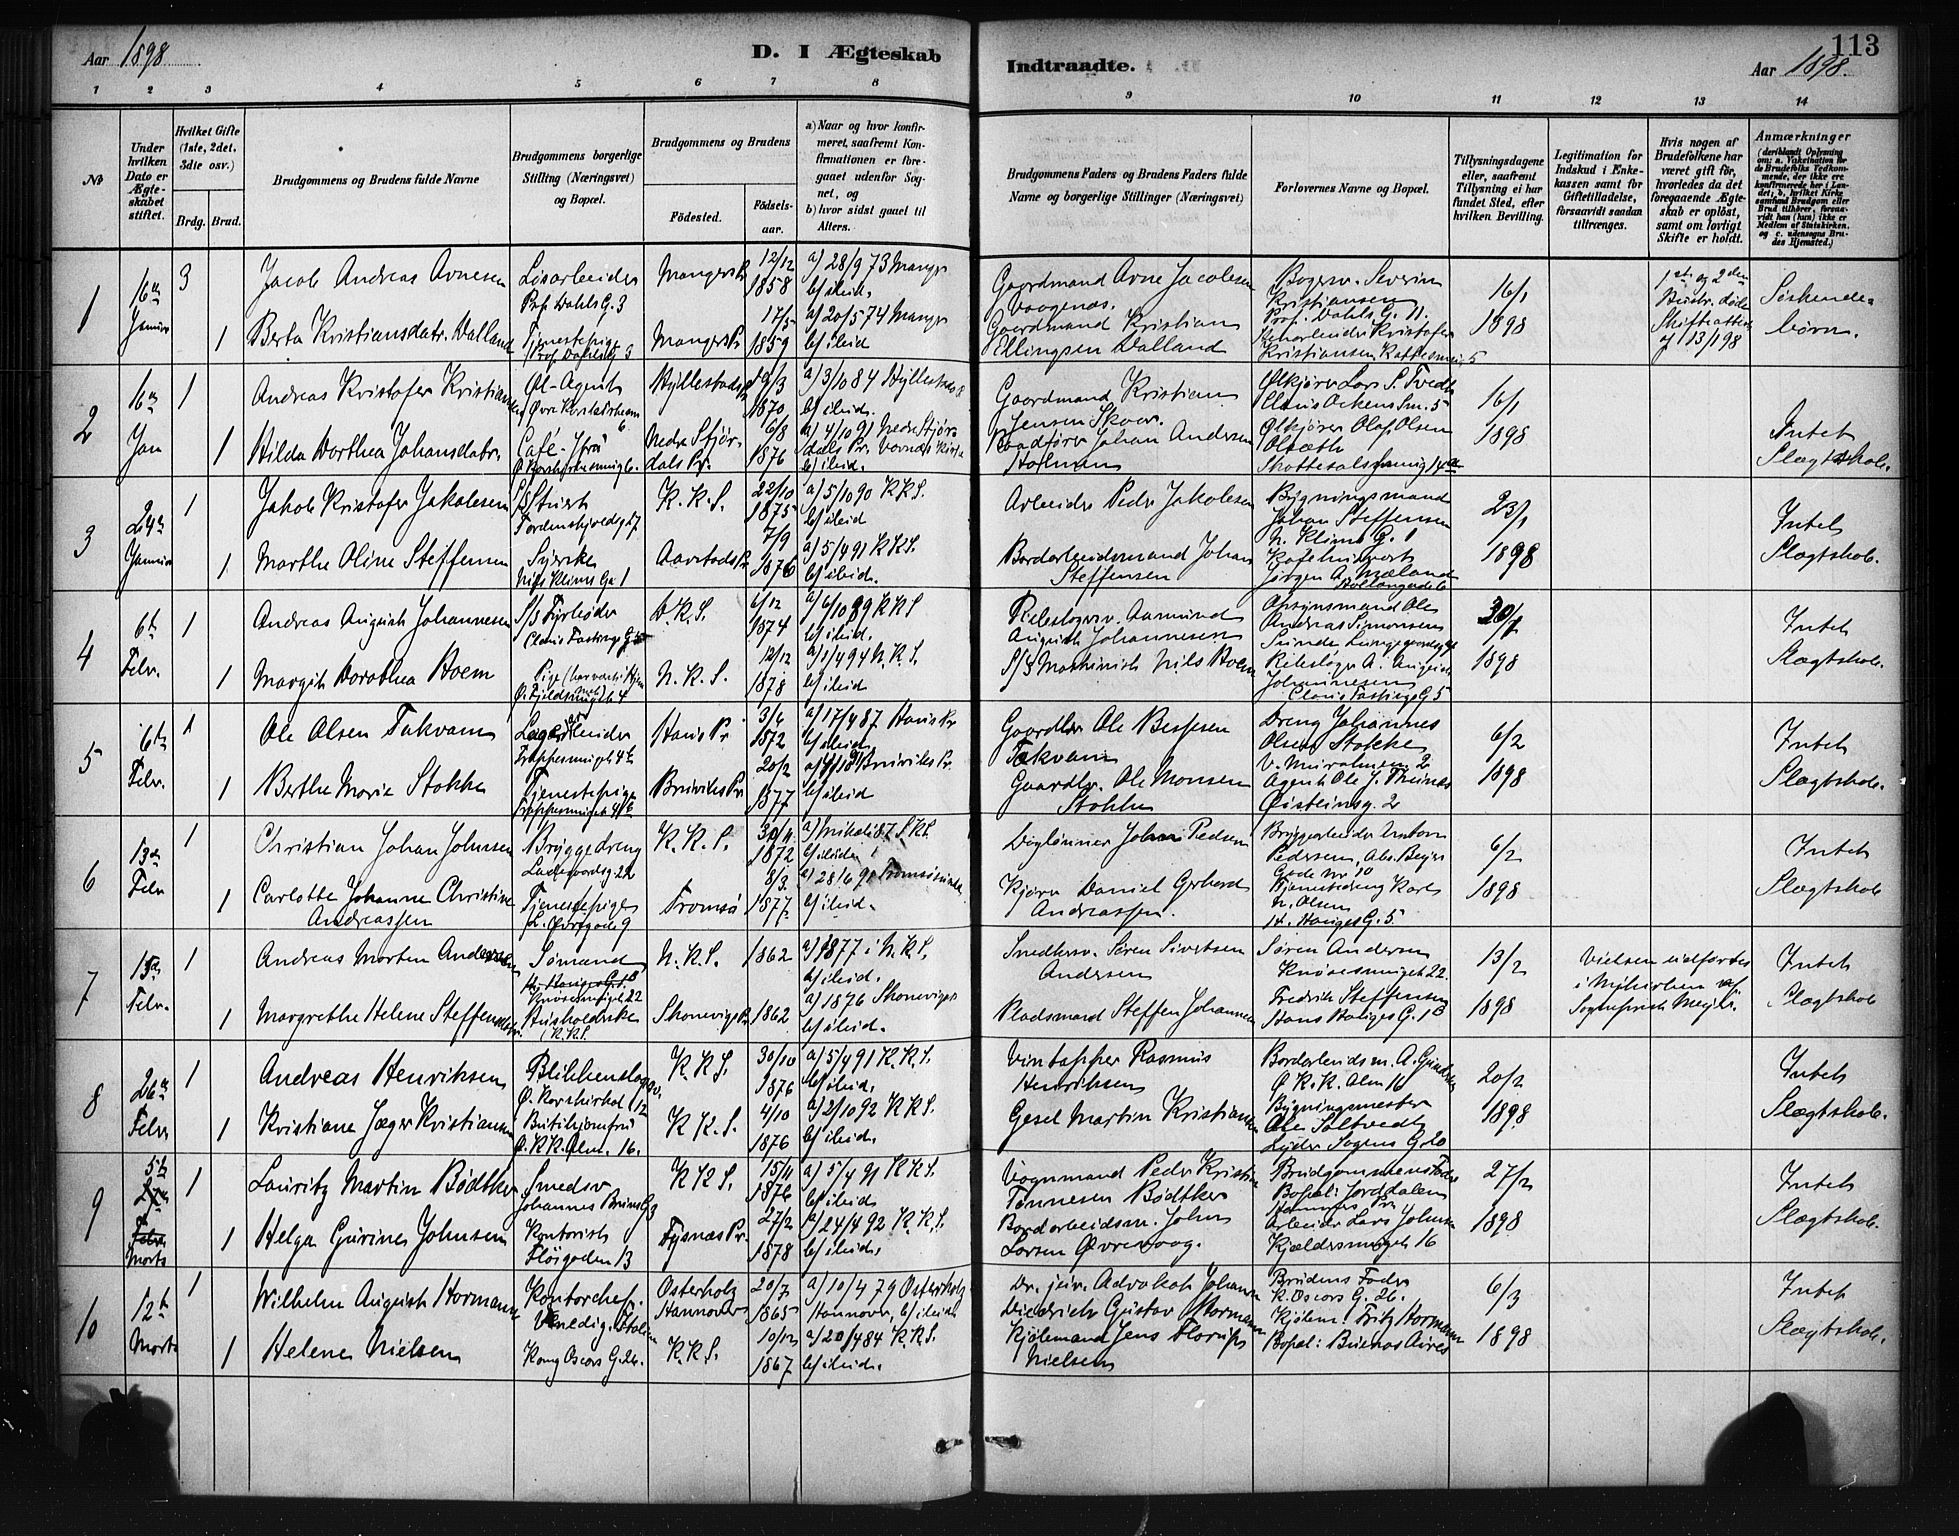 Aar 1898
D. I Ægteskab
Indtraadte.
113
Aar 1898.
1 2 3 4 5 6 7 8
9 10 11 12 13 14
No
Under hvilken Dato er Ægteskabet stiftet.
Hvilket Gifte (1ste, 2det, 3die osv.)
Brdg. Brud.
Brudgommens og Brudens fulde Navne
Brudgommens borgerlige Stilling (Næringsvei) og Bopæl.
Brudgommens og Brudens
Fødested.
Fødselsaar.
a) Naar og hvor konfirmeret, saafremt Konfirmationen er foregaaet udenfor Sognet, og
b) hvor sidst gaaet til Alters.
Brudgommens Faders og Brudens Faders fulde Navne og borgerlige Stillinger (Næringsvei)
Forlovernes Navne og Bopæl.
Tillysningsdagene eller, saafremt Tillysning ei har fundet Sted, efter hvilken Bevilling.
Legitimation for Indskud i Enkekassen samt for Giftetilladelse, forsaavidt saadan tiltrænges.
Hvis nogen af Brudefolkene har været gift før, hvorledes da det foregaaende Ægteskab er opløst, samt om lovligt Skifte er holdt.
Anmærkninger
(deriblandt Oplysning om: a. Vakcination for de Brudefolks Vedkommende, der ikke ere konfirmerede her i Landet; b. hvilket Kirkesamfund Brudgom eller Brud tilhører, forsaavidt han (hun) ikke er Medlem af Statskirken, og c. udensogns Brudes Hjemsted.)
1
16de Januar
3
Jacob Andreas Arnesen
Løsarbeider
Prof. Dahls G. 3
Mangers Pr
12/12 1858
a) 28/9 73 Manger
b) ibid.
Gaardmand Arne Jacobsen
Bogerw. Severin Kristiansen
Prof. Dahls G. 11.
16/1
1898
1ste og 2den Hustr. døde
Skifteattest af 13/1 98
Søskendebørn.
1
Berta Kristiansdatr. Dalland
Tjenestepige
Prof. Dahls G 3
Mangers Pr
17/5 1859
a) 20/5 74 Manger
b) ibid
Gaardmand Kristian Ellingsen Dalland
Kristofer Kristiansen
2
16de Jan
1
Andreas Kristofer Kristiansen
Øl-Agent
Hyllestad Pr
19/3 1870
a) 3/10 84 Hyllestad
b) ibid.
Gaardmand Kristian Jensen Skaar.
Ølkjører Lars S. Tvedt
Claus Ockens Sm. 5
16/1
1898
Intet Slægtskab.
1
Hilda Dorthea Johansdatr.
Café-Jfru
Nedre Stjørdals Pr.
6/8 1876
a) 4/10 91 Nedre Stjørdals Pr. Værnes Kirke
b) ibid.
Baadfører Johan Andersen Holmen
Ølkjører Olaf Olsen
3
24de Januar
1
Jakob Kristofer Jakobsen
Tordenskjoldsg 17
K. K. S.
22/10 1875
a) 5/10 90 K.K.S.
b) ibid
Arbeider Peder Jakobsen
Bygningsmand Johan Steffensen
N. Klims G. 1
23/1
1898
Intet Slægtskab.
1
Marthe Oline Steffensen
Syerske
Nils Klims G. 1
Aarstads Pr
7/9 1876
a) 5/4 91 K.K.S.
b) ibid.
Bordarbeidsmand Johan Steffensen
Jørgen A. Mæland
4
6te Febr.
1
Andreas August Johannesen
S/S Fyrbøder
Claus Fastings G 5
D.K.S.
6/12 1874
a) 6/10 89 K.K.S
b) ibid.
Rebslagersv. Aamund August Johannesen
Opsynsmand Ole Andreas Simonsen Sunde
30/1
1898
Intet Slægtskab.
1
Margit Dorothea Hoem
Pige
N. K. S.
12/12 1878
a) 1/4 94 N.K.S.
b) ibid
S/S Maskinist Nils Hoem
Rebslager A. August Johannesen
Claus Fastings G 5
5
6te Febr.
1
Ole Olsen Takvam
Lagerarbeider
Haus Pr
3/4 1872
a) 17/4 87 Haus Pr
b) ibid.
Gaardbr. Ole Bessesen Takvam
Dreng Johannes Olsen Stokke
V. Muralmen. 2
6/2
1898
Intet Slægtskab.
1
Berthe Marie Stokke
Tjenestepige
Bruviks Pr
20/2 1877
Bruviks Pr.
b) ibid
Gaardbr. Ole Monsen Stokke
Agent Ole J.
Øisteinsg. 2
6
13de Febr
1
Christian Johan Johnsen
Bryggedreng
Ladegaardsg 22
K. K. S.
30/11 1872
b) ibid.
Daglønner Johan Pedersen
Bryggearbeider Anton Pedersen, Abs. Beyers Gade Nr 10
6/2
1898
Intet Slægtskab
1
Carlotte Johanne Christine Andreassen
Tjenestepige
L. Øvregade 9
Tromsø
8/3 1877
b) ibid.
Kjører Daniel Gerhard Andreassen.
Karl N. Olsen
H. Hauges G. 5.
7
13de Febr.
1
Andreas Morten Andersen
Sømand
Knøsesmuget 22
N.K.S.
1862
a) 1877 i N.K.S.
b) ibid.
Smedsv. Søren Sivertsen Andersen
Søren Andersen
Knøsesmuget 22.
13/2
1898
Vielsen udførtes i Nykirken af Sogneprest Meyer.
Intet Slægtskab
1
Margrethe Helene Steffensdatr.
Husholderske
(K.K.S.
Skonevigs Pr
1862
a) 1876 Skonevigs
b) ibid.
Pladsmand Steffen Johannesen
Fredrik Steffensen
Hans Hauges G. 1B
8
26de Febr
1
Andreas Henriksen
Blikkenslagersv.
K. K. S.
30/10 1876
a) 5/4 91 K.K.S.
b) ibid.
Vintapper Rasmus Henriksen
Bordarbeidsm. A. Gundersen
Ø. K. K. Alm 16
20/2
1898
Intet Slægtskab.
1
Kristiane Jæger Kristiansen
Butikjomfru
Ø. K.K. Alm. 16.
K. K. S.
4/10 1876
a) 2/10 92 K.K.S.
b) ibid.
Gesel Martin Kristiansen
Bygningsmester Ole Saltvedt
Lyder Sagens G. 20
9
5te Marts
1
Lauritz Martin Bødtker
Smedsv
Johannes Bruns G 3
K K S.
15/11 1876
a) 5/4 91 K.K.S.
b) ibid
Vognmand Peder Kristian Tønnesen Bødtker
Brudgommens Fader
Bopæl: Jordalen
Hammers Pr.
27/2
1898
Intet Slægtskab.
1
Helga Gurine Johnsen
Kontorist
Fløigaden 13
Tysnæs Pr.
27/2 1878
a) 24/4 92 K.K.S.
b) ibid.
Bordarbeidsm. John Larsen Øvrevaag.
Arbeider Lars Johnsen
Kjældersmuget 16
10
12te Marts
1
Wilhelm August Hormann
Kontorchef.
Venedig, Italien
Osterholz Hannover
20/7 1865
a) 10/4 79 Osterholz Hannover, b) ibid.
Dr. jur. Advokat Johann Diedrich Gustav Hormann
Brudens Fader
K. Oscars G. 26.
6/3
1898
Intet Slægtskab.
1
Helene Nielsen
Kong Oscars G. 26.
K.K.S.
10/12 1867
a) 20/4 84 K.K.S.
b) ibid.
Kjøbmand Jens Florup Nielsen
Kjøbm. Fritz Hormann
Bopæl: Buenos Aires